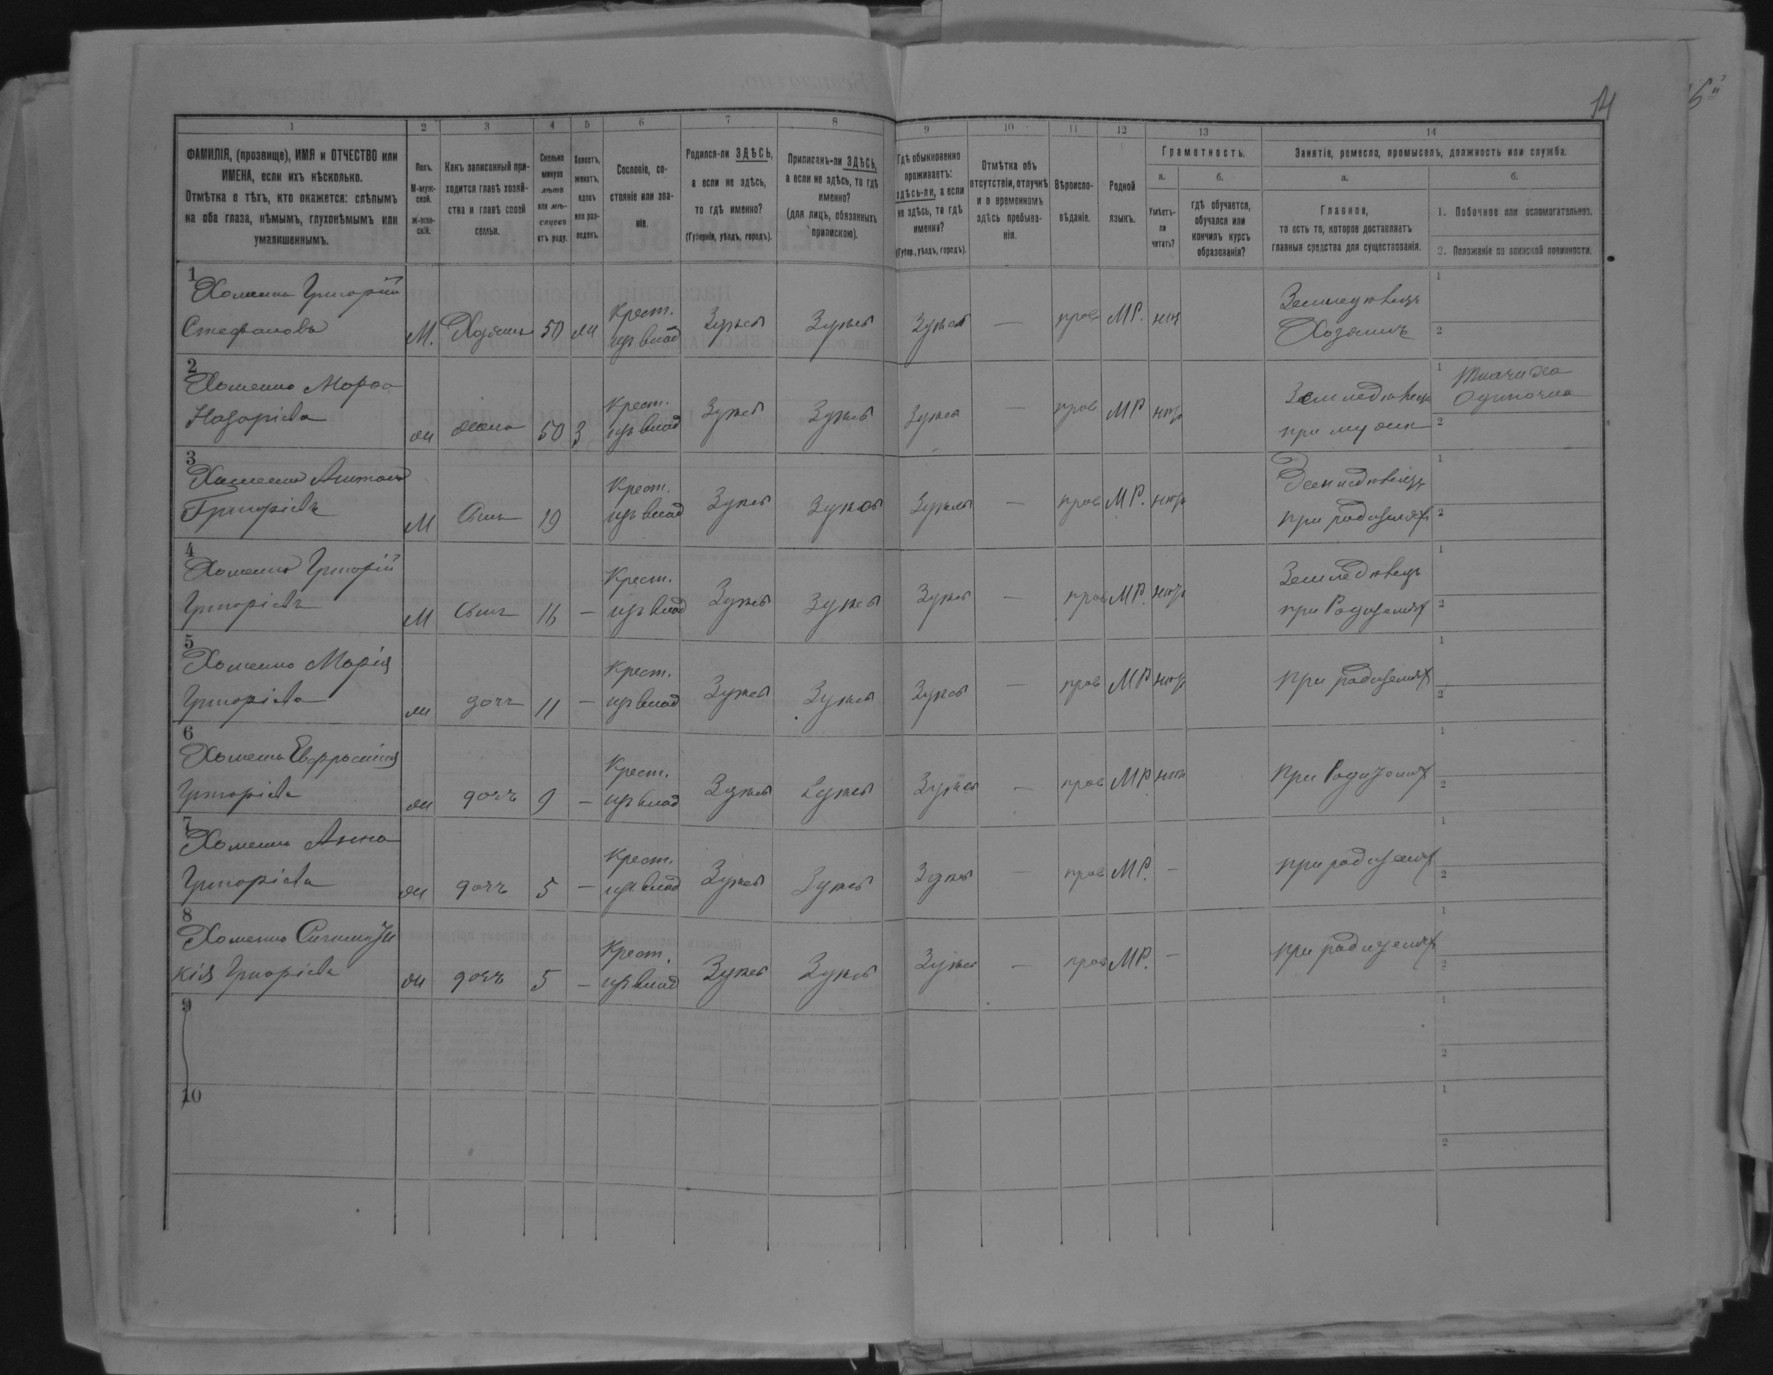 14
1 2 3 4 5 6 7 8 9 10 11 12 13 14
ФАМИЛІЯ, (прозвище), ИМЯ и ОТЧЕСТВО или
ИМЕНА, если ихъ нѣсколько.
Отмѣтка о тѣхъ, кто окажется: слѣпымъ
на оба глаза, нѣмымъ, глухонѣмымъ или
умалишеннымъ.
Полъ.
М-муж-
ской.
Ж-жен-
скій.
Какъ записанный при-
ходится главѣ хозяй-
ства и главѣ своей
семьи.
Сколько
минуло
лѣтъ
или мѣ-
сяцевъ
отъ роду.
Холостъ,
женатъ,
вдовъ
или раз-
веденъ.
Сословіе, со-
стояніе или зва-
ніе.
Родился-ли ЗДѢСЬ,
а если не здѣсь,
то гдѣ именно?
(Губернія, уѣздъ, городъ).
Приписанъ-ли ЗДѢСЬ,
а если не здѣсь, то гдѣ
именно?
(для лицъ, обязанныхъ
припискою).
Гдѣ обыкновенно
проживаетъ:
здѣсь-ли, а если
не здѣсь, то гдѣ
именно?
(Губер., уѣздъ, городъ).
Отмѣтка объ
отсутствіи, отлучкѣ
и о временномъ
здѣсь пребыва-
ніи.
Вѣроиспо-
вѣданіе.
Родной
языкъ.
Грамотность.
а. б.
Умѣетъ-
ли
читать?
гдѣ обучается,
обучался или
кончилъ курсъ
образованія?
Занятіе, ремесло, промыселъ, должность или служба.
а. б.
Главное,
то есть то, которое доставляетъ
главныя средства для существованія.
1. Побочное или вспомогательное.
2. Положеніе по воинской повинности.
1
Хоменко Григорій
Стефановъ М. Хозяинъ 50 Крест.
изъ влад Здѣсь Здѣсь Здѣсь — прав МР. нѣтъ Земледѣлецъ
Хозяинъ
1
2
2
Хоменко
Назаріева жена 50 З Крест.
изъ влад Здѣсь Здѣсь Здѣсь — прав МР нѣтъ Земледѣлецъ
при мужи
1 Ткачиха
Одиночка
2
3
Хоменко Антонъ
Григоріевъ М Сынъ 19 Крест.
изъ влад Здѣсь Здѣсь Здѣсь — прав МР. нѣтъ Земледѣлецъ
при родителях
1
2
4
Хоменко Григорій
Григоріевъ М Сынъ 16 — Крест.
изъ влад Здѣсь Здѣсь Здѣсь — прав МР. нѣтъ Земледѣлецъ
при Родителях
1
2
5
Хоменко Марія
Григоріева дочь 11 — Крест.
изъ влад Здѣсь Здѣсь Здѣсь — прав МР нѣтъ при родителях
1
2
6
Хоменко Евфросинія
Григоріева дочь 9 — Крест.
изъ влад Здѣсь Здѣсь Здѣсь — прав МР нѣтъ При Родителях
1
2
7
Хоменко Анна
Григоріева дочь 5 — Крест.
изъ влад Здѣсь Здѣсь Здѣсь — прав МР. — при родителях
1
2
8
Хоменко
Григоріева дочь 5 — Крест.
изъ влад Здѣсь Здѣсь Здѣсь — прав МР. — при родителях
1
2
9
1
2
10
1
2